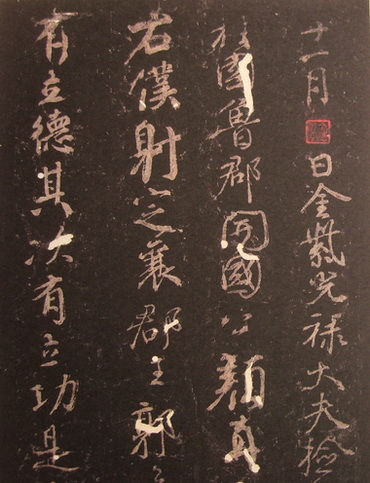 十一月日金紫光祿大夫檢
柱國魯郡開國公顏真
右僕射定襄郡王郭
有立德其次有立功是